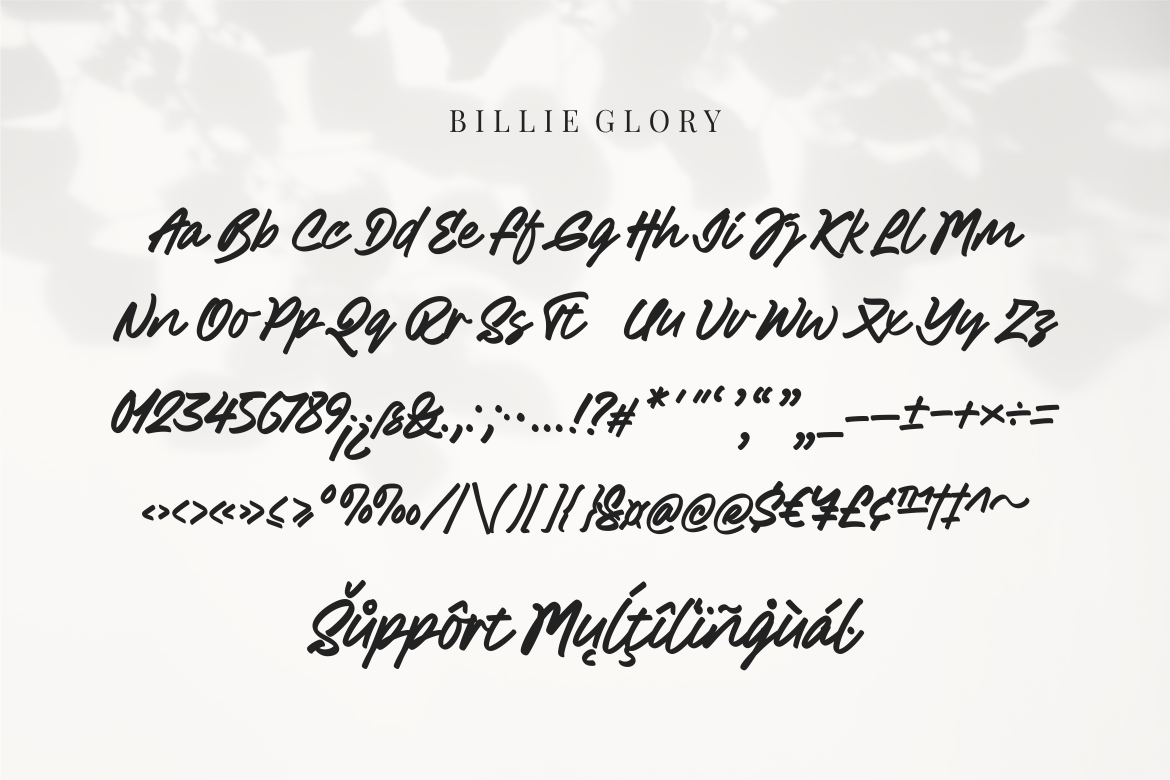 BILLIE GLORY
Aa Bb Cc Dd Ee Ff Gg Hh Ii Jj Kk Ll Mm
Nn Oo Pp Qq Rr Ss Tt Uu Vv Ww Xx Yy Zz
0123456789¡¿ß&.,:;·…!?#*'"‘’‚“”„_-–—±−+×÷=
‹›<>«»≤≥°%‰/|\()[]{}§¤@©®$€¥£¢™†‡^~
Šůppôrt Mųĺţîĺïñġùáŀ